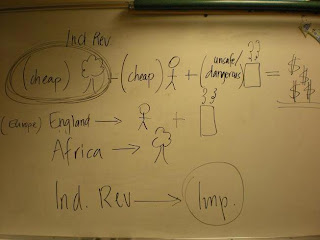 Ind Rev
(cheap) + (cheap) + (unsafe/dangerous) = $ $ $ $
(Europe) England → +
Africa →
Ind. Rev → Imp.